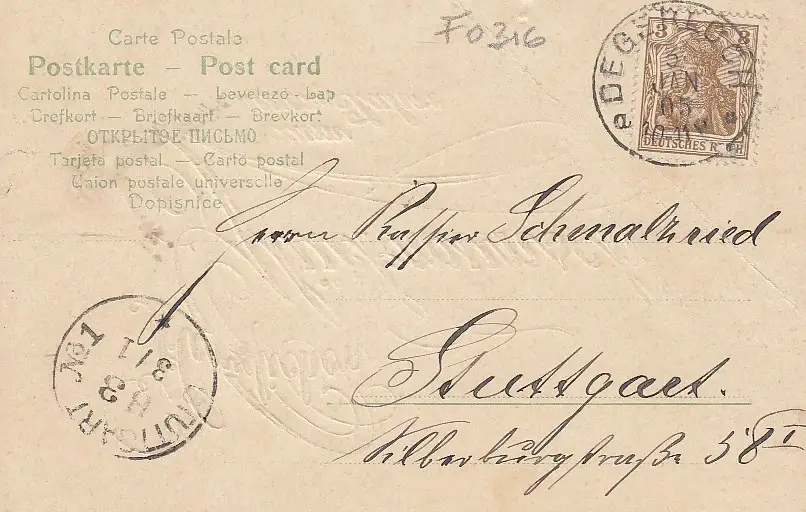 F0316
Carte Postale
Postkarte – Post card
Cartolina Postale – Levelező-Lap
Brefkort – Briefkaart – Brevkort
ОТКРЫТОЕ ПИСЬМО
Tarjeta postal – Carto postal
Union postale universelle
Dopisnice
3 3
DEGERLOCH
3
JAN
05
10-11V
DEUTSCHES REICH
Herrn Kassier Schmalzried
Stuttgart.
Silberburgstraße 58 I
STUTTGART No 1
3/1